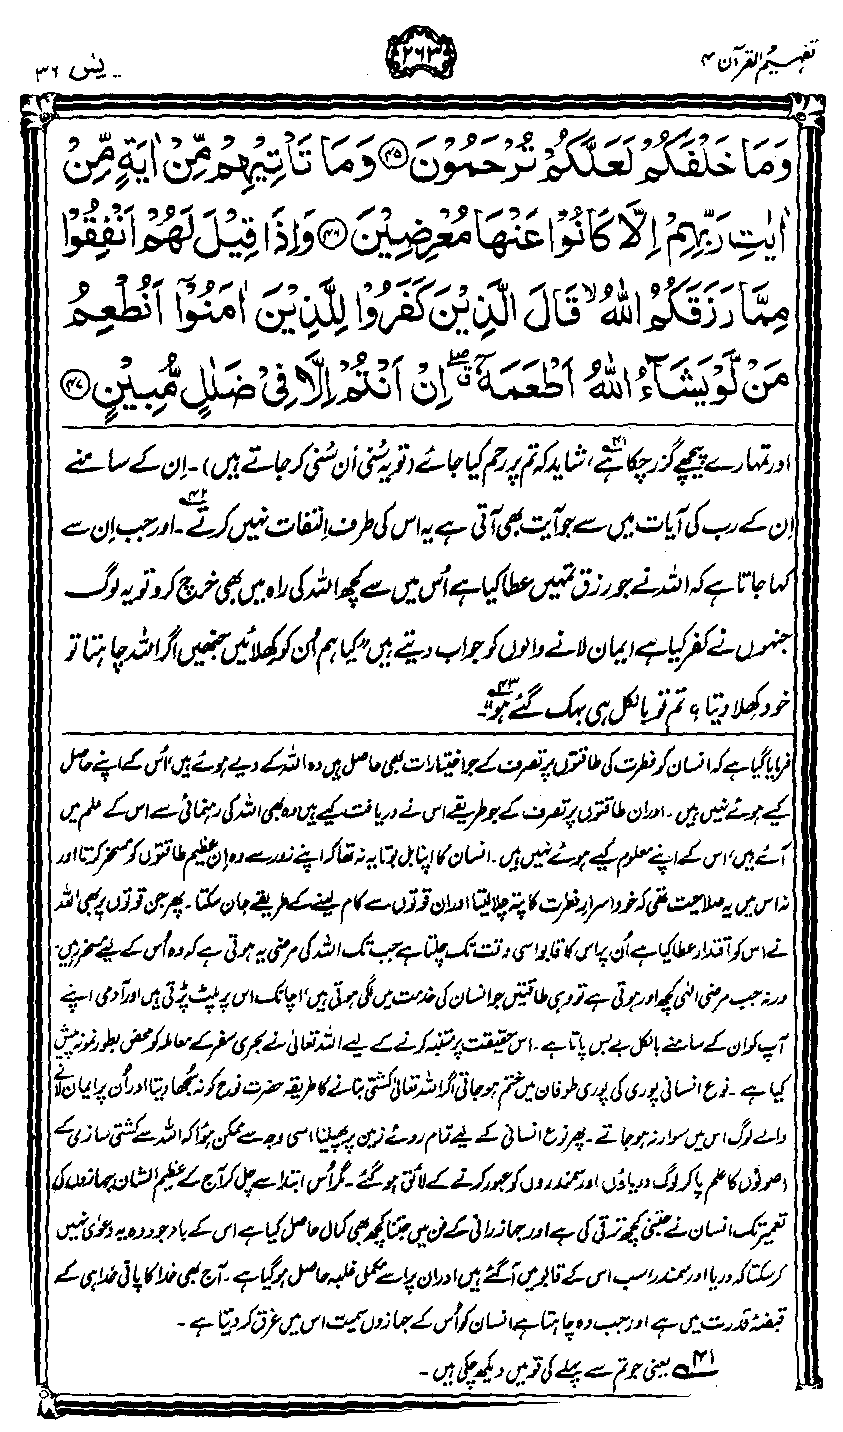 تفہیم القرآن ۴
۲۶۳
یٰسٓ ۳۶
وَمَا خَلْفَكُمْ لَعَلَّكُمْ تُرْحَمُوْنَ ﴿۴۵﴾ وَمَا تَاْتِيْهِمْ مِّنْ اٰيَةٍ مِّنْ
اٰيٰتِ رَبِّهِمْ اِلَّا كَانُوْا عَنْهَا مُعْرِضِيْنَ ﴿۴۶﴾ وَاِذَا قِيْلَ لَهُمْ اَنْفِقُوْا
مِمَّا رَزَقَكُمُ اللّٰهُ ۙ قَالَ الَّذِيْنَ كَفَرُوْا لِلَّذِيْنَ اٰمَنُوْٓا اَنُطْعِمُ
مَنْ لَّوْ يَشَآءُ اللّٰهُ اَطْعَمَهٗٓ ۖ ق اِنْ اَنْتُمْ اِلَّا فِيْ ضَلٰلٍ مُّبِيْنٍ ﴿۴۷﴾
اور تمہارے پیچھے گزر چکا ہے۴۱، شاید کہ تم پر رحم کیا جائے (تو یہ سُنی اَن سُنی کر جاتے ہیں)۔ اِن کے سامنے
اِن کے رب کی آیات میں سے جو آیت بھی آتی ہے یہ اس کی طرف التفات نہیں کرتے۴۲۔ اور جب اِن سے
کہا جاتا ہے کہ اللہ نے جو رزق تمہیں عطا کیا ہے اُس میں سے کچھ اللہ کی راہ میں بھی خرچ کرو تو یہ لوگ
جنہوں نے کفر کیا ہے ایمان لانے والوں کو جواب دیتے ہیں ”کیا ہم اُن کو کھلائیں جنھیں اگر اللہ چاہتا تو
خود کھلا دیتا؟ تم تو بالکل ہی بہک گئے ہو۴۳“۔
فرمایا گیا ہے کہ انسان کو فطرت کی طاقتوں پر تصرف کے جو اختیارات بھی حاصل ہیں وہ اللہ کے دیے ہوئے ہیں، اُس کے اپنے حاصل
کیے ہوئے نہیں ہیں۔ اور ان طاقتوں پر تصرف کے جو طریقے اس نے دریافت کیے ہیں وہ بھی اللہ کی رہنمائی سے اس کے علم میں
آئے ہیں، اس کے اپنے معلوم کیے ہوئے نہیں ہیں۔ انسان کا اپنا بل بوتا یہ نہ تھا کہ اپنے زور سے وہ اِن عظیم طاقتوں کو مسخر کرتا اور
نہ اس میں یہ صلاحیت تھی کہ خود اسرارِ فطرت کا پتہ چلا لیتا اور ان قوتوں سے کام لینے کے طریقے جان سکتا۔ پھر جن قوتوں پر بھی اللہ
نے اس کو اقتدار عطا کیا ہے اُن پر اس کا قابو اسی وقت تک چلتا ہے جب تک اللہ کی مرضی یہ ہوتی ہے کہ وہ اُس کے لیے مسخر رہیں۔
ورنہ جب مرضی الٰہی کچھ اور ہوتی ہے تو وہی طاقتیں جو انسان کی خدمت میں لگی ہوتی ہیں، اچانک اس پر پلٹ پڑتی ہیں اور آدمی اپنے
آپ کو ان کے سامنے بالکل بے بس پاتا ہے۔ اس حقیقت پر متنبہ کرنے کے لیے اللہ تعالیٰ نے بحری سفر کے معاملہ کو محض بطور نمونہ پیش
کیا ہے۔ نوع انسانی پوری کی پوری طوفان میں ختم ہو جاتی اگر اللہ تعالیٰ کشتی بنانے کا طریقہ حضرت نوح کو نہ سُجھا دیتا اور اُن پر ایمان لانے
والے لوگ اس میں سوار نہ ہو جاتے۔ پھر نوع انسانی کے لیے تمام روئے زمین پر پھیلنا اسی وجہ سے ممکن ہوا کہ اللہ سے کشتی سازی کے
اصولوں کا علم پا کر لوگ دریاؤں اور سمندروں کو عبور کرنے کے لائق ہو گئے۔ مگر اُس ابتدا سے چل کر آج کے عظیم الشان جہازوں کی
تعمیر تک انسان نے جتنی کچھ ترقی کی ہے اور جہاز رانی کے فن میں جتنا کچھ بھی کمال حاصل کیا ہے اس کے باوجود وہ یہ دعویٰ نہیں
کر سکتا کہ دریا اور سمندر، سب اس کے قابو میں آ گئے ہیں اور ان پر اسے مکمل غلبہ حاصل ہو گیا ہے۔ آج بھی خدا کا پانی خدا ہی کے
قبضۂ قدرت میں ہے اور جب وہ چاہتا ہے انسان کو اُس کے جہازوں سمیت اس میں غرق کر دیتا ہے۔
۴۱ یعنی جو تم سے پہلے کی قومیں دیکھ چکی ہیں۔